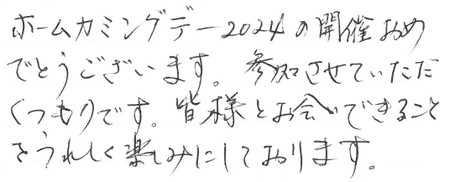 ホームカミングデー2024の開催おめ
でとうございます。参加させていただ
くつもりです。皆様とお会いできること
をうれしく楽しみにしております。